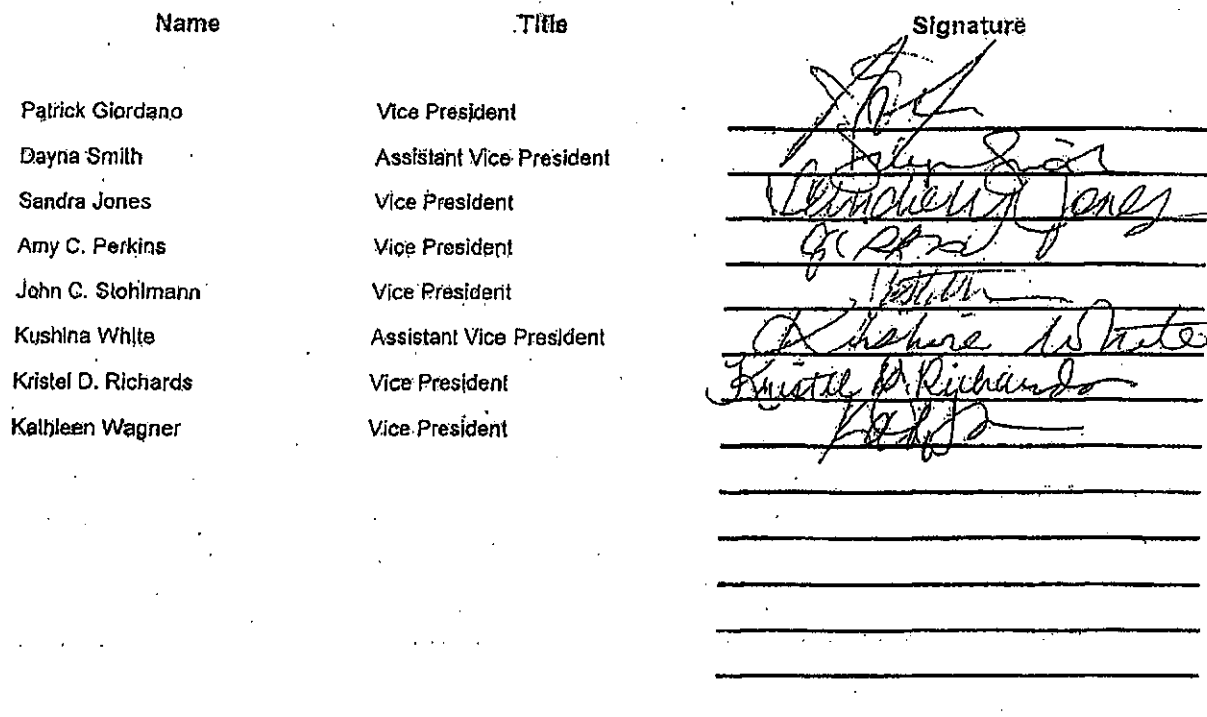 Name Title Signature
Patrick Giordano Vice President
Dayna Smith Assistant Vice President
Sandra Jones Vice President Jones
Amy C. Perkins Vice President
John C. Stohlmann Vice President
Kushina White Assistant Vice President White
Kristel D. Richards Vice President D. Richards
Kathleen Wagner Vice President